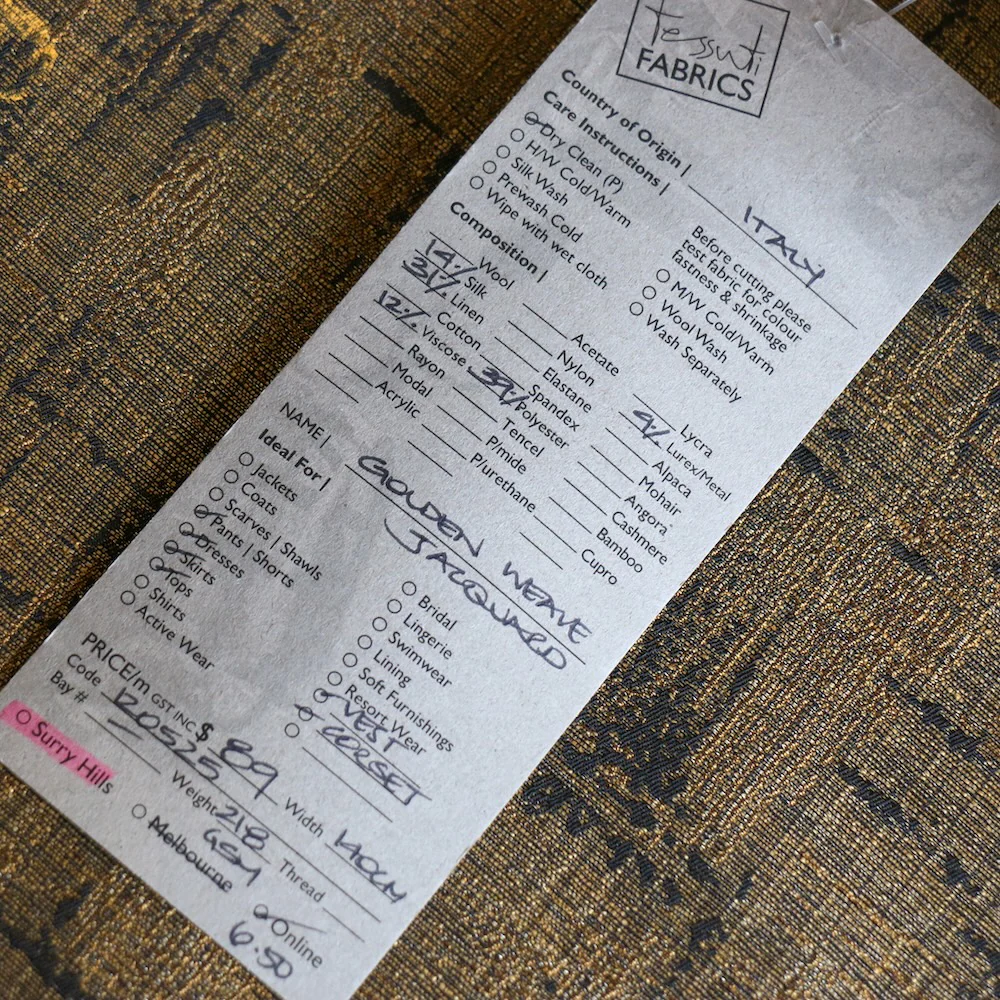 Tessuti
FABRICS
Country of Origin | ITALY
Care Instructions |
Dry Clean (P)
H/W Cold/Warm
Silk Wash
Prewash Cold
Wipe with wet cloth
Before cutting please
test fabric for colour
fastness & shrinkage
M/W Cold/Warm
Wool Wash
Wash Separately
Composition |
14% Wool
31% Silk
Linen
Cotton
12% Viscose
Rayon
Modal
Acrylic
Acetate
Nylon
Elastane
Spandex
39% Polyester
Tencel
P/mide
P/urethane
Lycra
4% Lurex/Metal
Alpaca
Mohair
Angora
Cashmere
Bamboo
Cupro
NAME | GOLDEN WEAVE
JACQUARD
Ideal For |
Jackets
Coats
Scarves | Shawls
Pants | Shorts
Dresses
Skirts
Tops
Shirts
Active Wear
Bridal
Lingerie
Swimwear
Lining
Soft Furnishings
Resort Wear
VEST
CORSET
PRICE/m GST INC $ 89
Code 120525
Bay #
Width 140CM
Weight 218
GSM
Thread
Surry Hills
Melbourne
Online
6.50